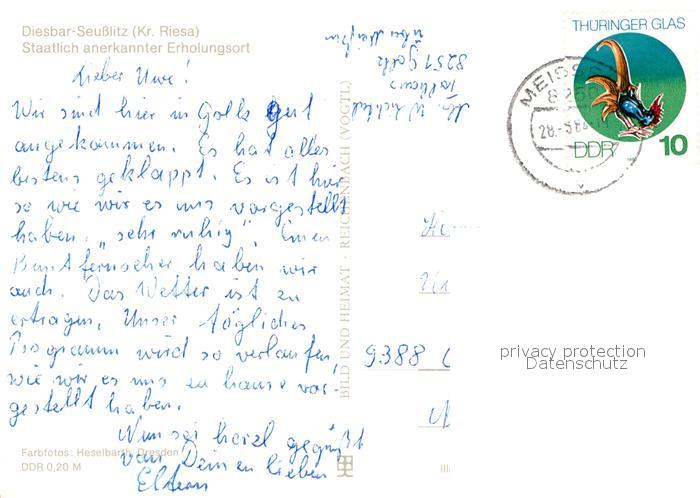 Diesbar-Seußlitz (Kr. Riesa)
Staatlich anerkannter Erholungsort
Lieber Uwe!
Wir sind hier in Golk gut
angekommen. Es hat alles
bestens geklappt. Es ist hier
so wie wir es uns vorgestellt
haben. „sehr ruhig". Einen
Buntfernseher haben wir
auch. Das Wetter ist zu
ertragen. Unser tägliches
Programm wird so verlaufen,
wie wir es uns zu hause vor-
gestellt haben.
Nun sei herzl gegrüßt
von Deinen lieben
Eltern
Farbfotos: Heselbarth, Dresden
DDR 0,20 M
8251 Golk
über Meißen
BILD UND HEIMAT · REICHENBACH (VOGTL)
III
THÜRINGER GLAS
DDR 10
MEISSEN
8250
9388
privacy protection
Datenschutz